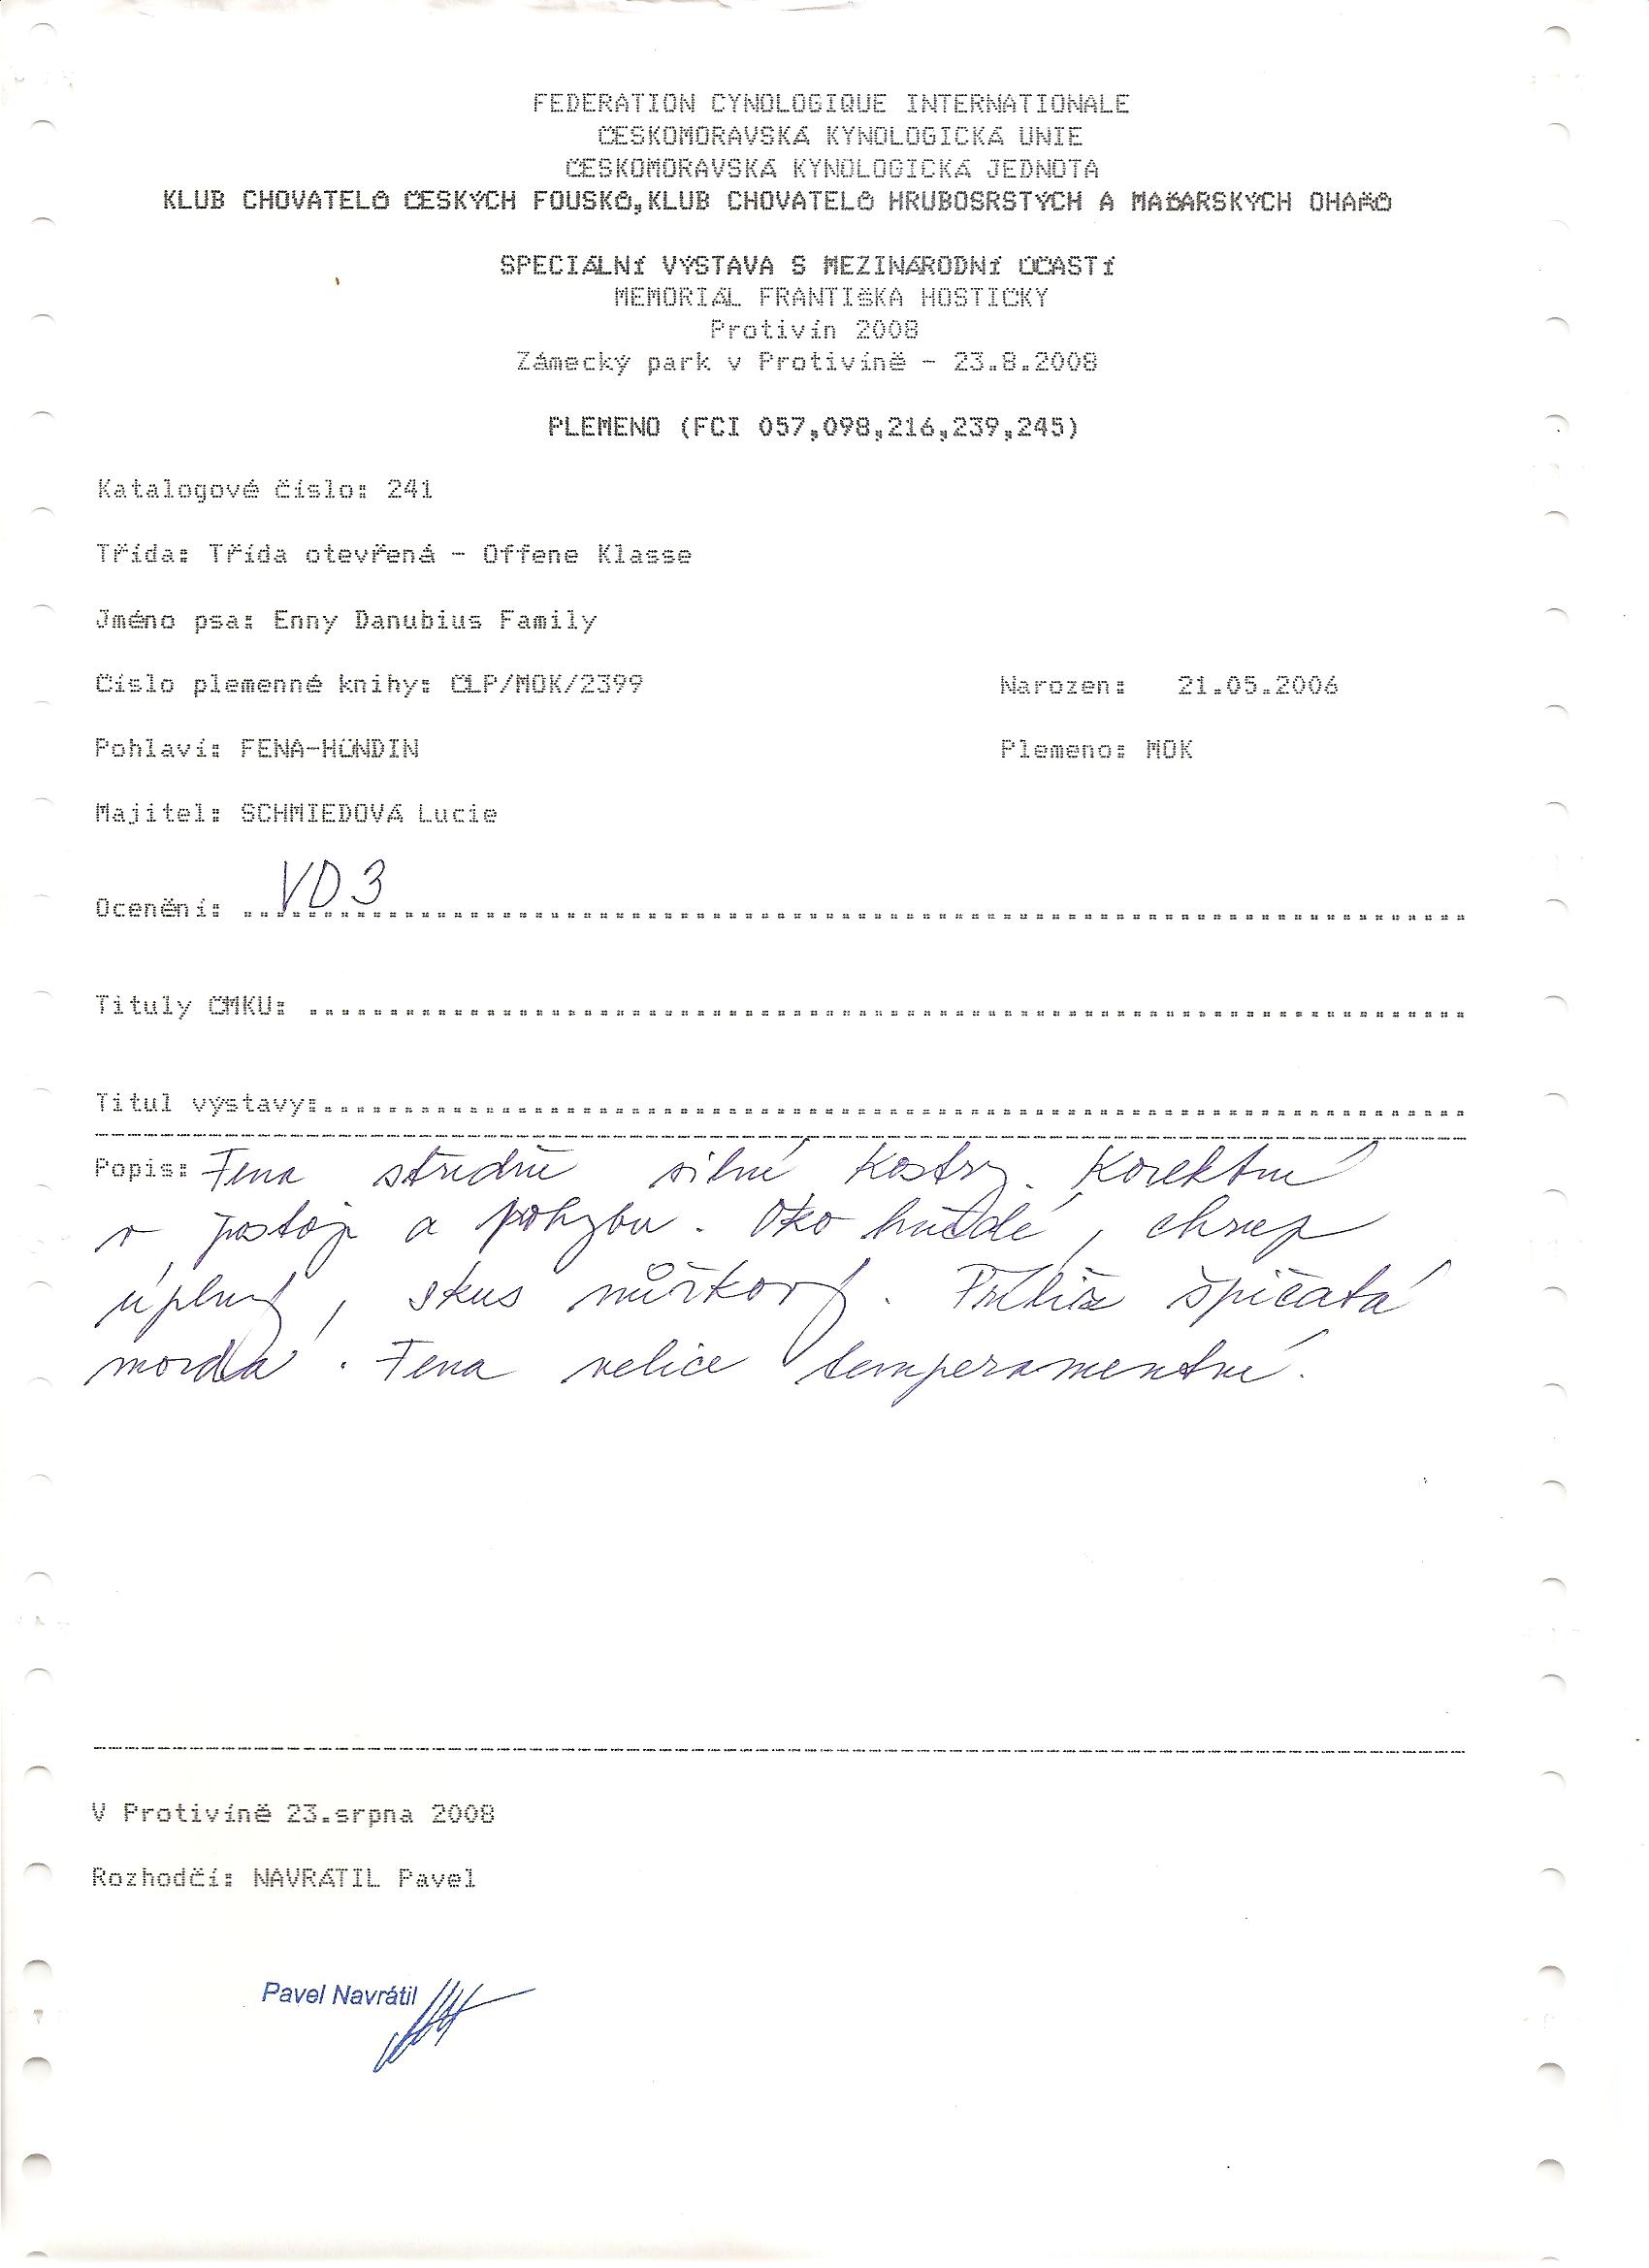 FEDERATION CYNOLOGIQUE INTERNATIONALE
ČESKOMORAVSKÁ KYNOLOGICKÁ UNIE
ČESKOMORAVSKÁ KYNOLOGICKÁ JEDNOTA
KLUB CHOVATELŮ ČESKÝCH FOUSKŮ,KLUB CHOVATELŮ HRUBOSRSTÝCH A MAĎARSKÝCH OHAŘŮ
SPECIÁLNÍ VÝSTAVA S MEZINÁRODNÍ ÚČASTÍ
MEMORIÁL FRANTIŠKA HOSTIČKY
Protivín 2008
Zámecký park v Protivíně - 23.8.2008
PLEMENO (FCI 057,098,216,239,245)
Katalogové číslo: 241
Třída: Třída otevřená - Offene Klasse
Jméno psa: Enny Danubius Family
Číslo plemenné knihy: CLP/MOK/2399 Narozen: 21.05.2006
Pohlaví: FENA-HÜNDIN Plemeno: MOK
Majitel: SCHMIEDOVÁ Lucie
Ocenění: VD3
Tituly ČMKU:
Titul výstavy:
Popis: Fena středně silné kostry. Korektní
v postoji a pohybu. Oko hnědé, chrup
úplný, skus nůžkový. Příliš špičatá
morda. Fena velice temperamentní.
V Protivíně 23.srpna 2008
Rozhodčí: NAVRÁTIL Pavel
Pavel Navrátil